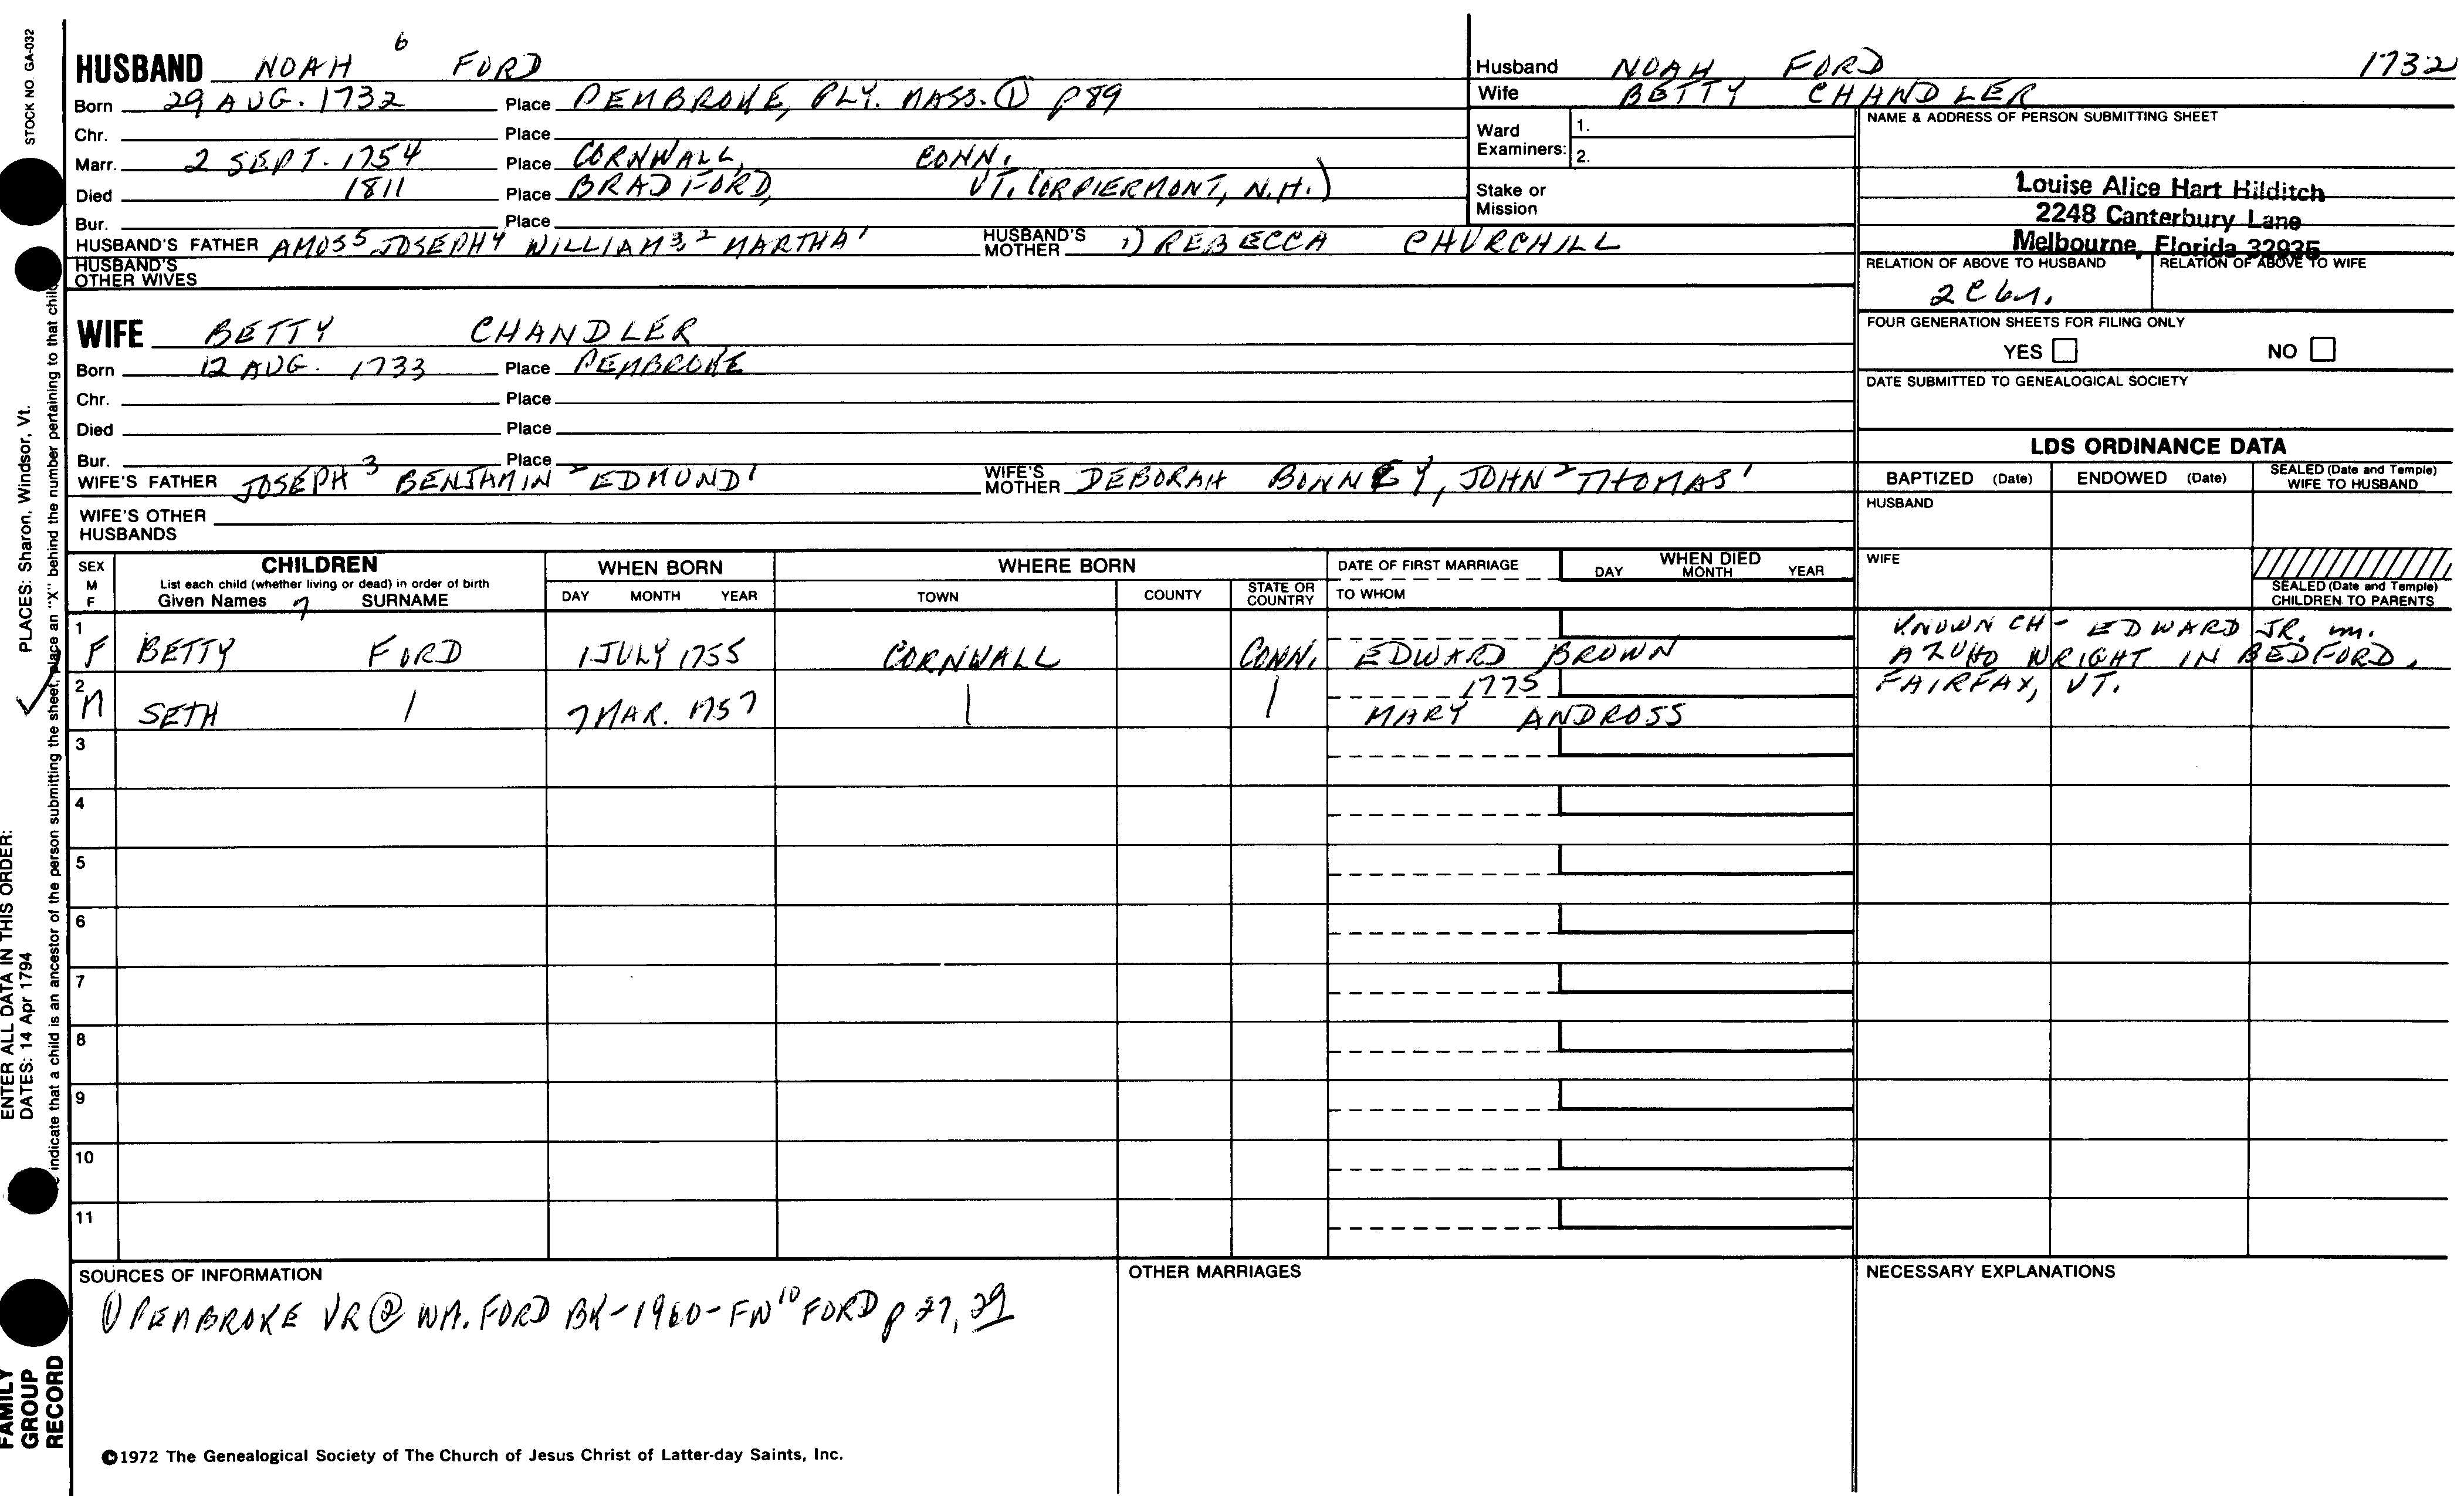 STOCK NO. GA-032
HUSBAND NOAH 6 FORD
Born 29 AUG. 1732 Place PEMBROKE, PLY. MASS. ① P89
Chr. Place
Marr. 2 SEPT. 1754 Place CORNWALL, CONN.
Died 1811 Place BRADFORD, VT. (OR PIERMONT, N.H.)
Bur. Place
HUSBAND'S FATHER AMOS5 JOSEPH4 WILLIAM3,2 MARTHA1 HUSBAND'S MOTHER 1) REBECCA CHURCHILL
HUSBAND'S OTHER WIVES
WIFE BETTY CHANDLER
Born 12 AUG. 1733 Place PEMBROKE
Chr. Place
Died Place
Bur. Place
WIFE'S FATHER JOSEPH3 BENJAMIN2 EDMUND1 WIFE'S MOTHER DEBORAH BONNEY, JOHN2 THOMAS1
WIFE'S OTHER HUSBANDS
Husband NOAH FORD 1732
Wife BETTY CHANDLER
Ward Examiners: 1.
2.
Stake or Mission
NAME & ADDRESS OF PERSON SUBMITTING SHEET
Louise Alice Hart Hilditch
2248 Canterbury Lane
Melbourne, Florida 32935
RELATION OF ABOVE TO HUSBAND RELATION OF ABOVE TO WIFE
2C6r.
FOUR GENERATION SHEETS FOR FILING ONLY
YES NO
DATE SUBMITTED TO GENEALOGICAL SOCIETY
LDS ORDINANCE DATA
BAPTIZED (Date) ENDOWED (Date) SEALED (Date and Temple) WIFE TO HUSBAND
HUSBAND
WIFE
SEALED (Date and Temple) CHILDREN TO PARENTS
SEX M F CHILDREN WHEN BORN WHERE BORN DATE OF FIRST MARRIAGE WHEN DIED
List each child (whether living or dead) in order of birth
Given Names 7 SURNAME DAY MONTH YEAR TOWN COUNTY STATE OR COUNTRY TO WHOM DAY MONTH YEAR
1 F BETTY FORD 1 JULY 1755 CORNWALL CONN. EDWARD BROWN
KNOWN CH - EDWARD JR. m.
WRIGHT IN BEDFORD,
FAIRFAX, VT.
2 M SETH 7 MAR. 1757 1775 MARY ANDROSS
3
4
5
6
7
8
9
10
11
SOURCES OF INFORMATION
① PEMBROKE VR ② WM. FORD BK-1960-FW10 FORD p 27, 29
OTHER MARRIAGES
NECESSARY EXPLANATIONS
©1972 The Genealogical Society of The Church of Jesus Christ of Latter-day Saints, Inc.
FAMILY GROUP RECORD
ENTER ALL DATA IN THIS ORDER:
DATES: 14 Apr 1794 PLACES: Sharon, Windsor, Vt.
indicate that a child is an ancestor of the person submitting the sheet, place an "X" behind the number pertaining to that child